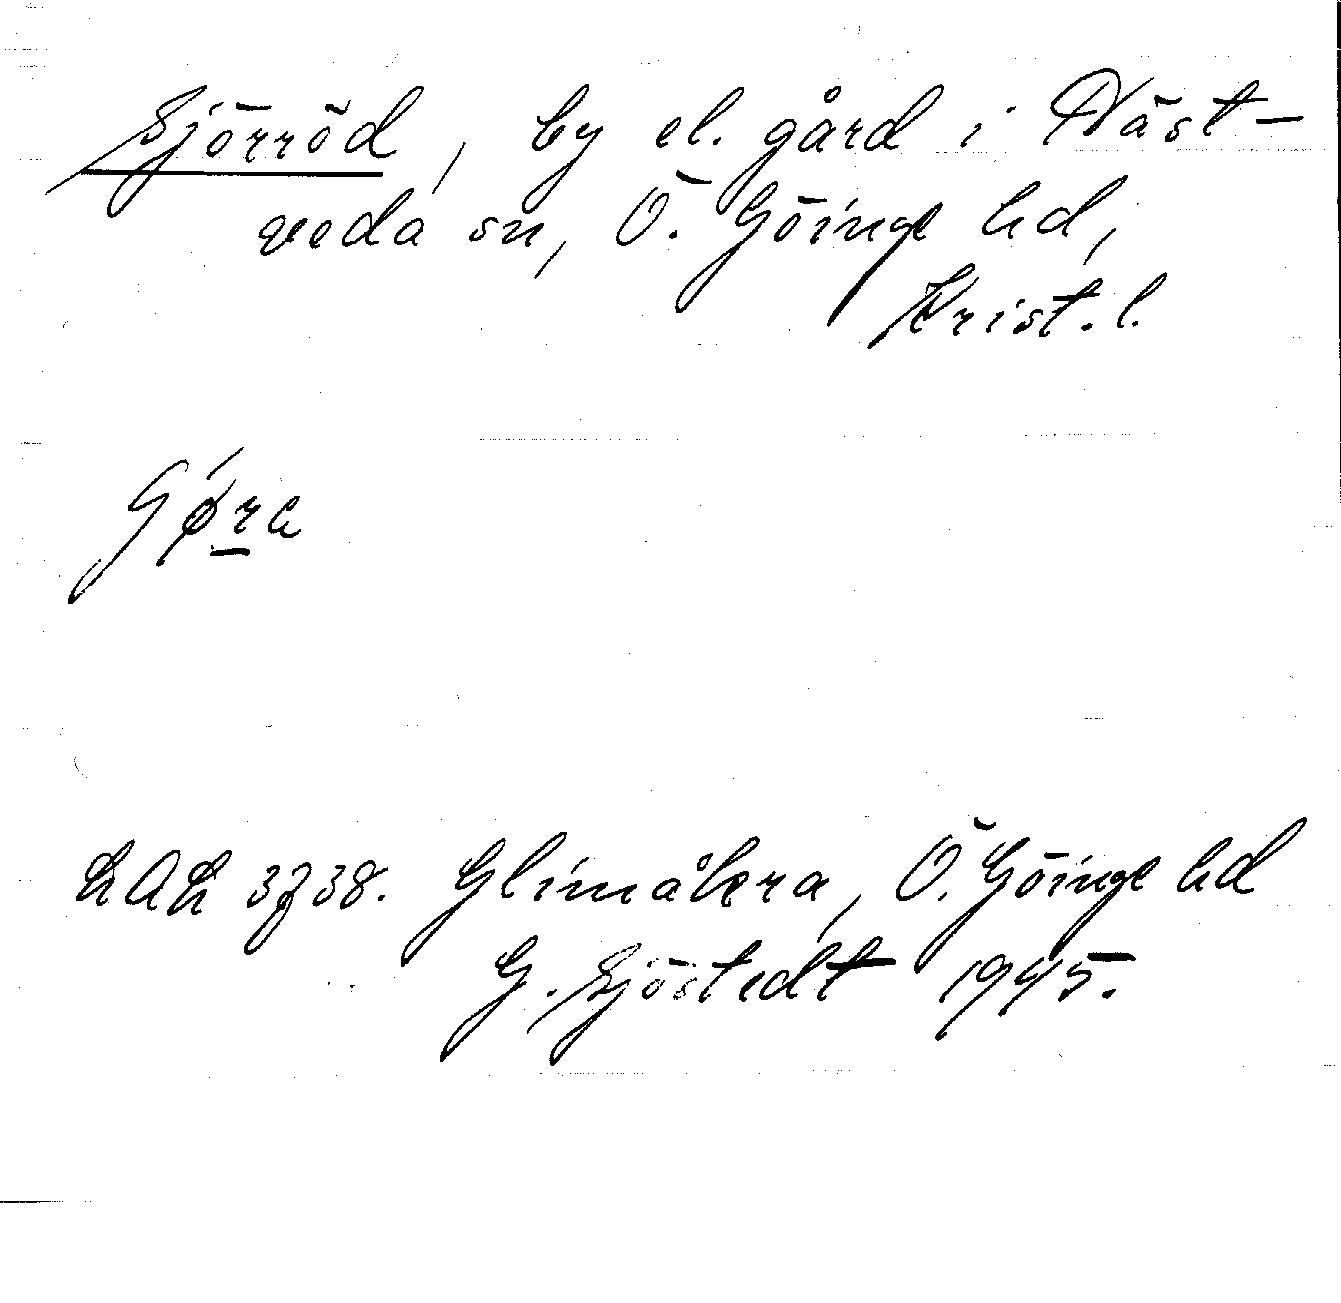 Sjörröd, by el. gård i Näst-
veda sn, Ö. Göinge hd,
Krist. l.
Gǿra
LAL 3738. Glimåkra, Ö. Göinge hd
G. Sjöstedt 1945.